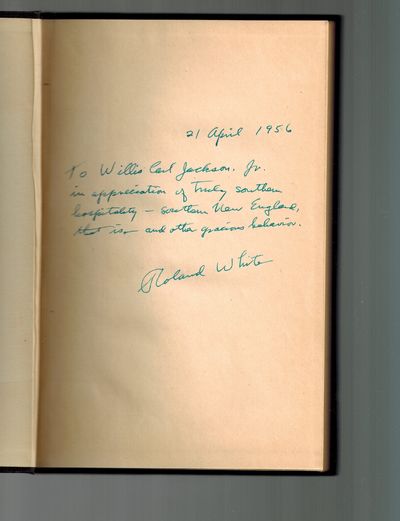 21 April 1956
To Willis Carl Jackson, Jr.
in appreciation of truly southern
hospitality — southern New England,
that is, and other gracious behavior.
Roland White